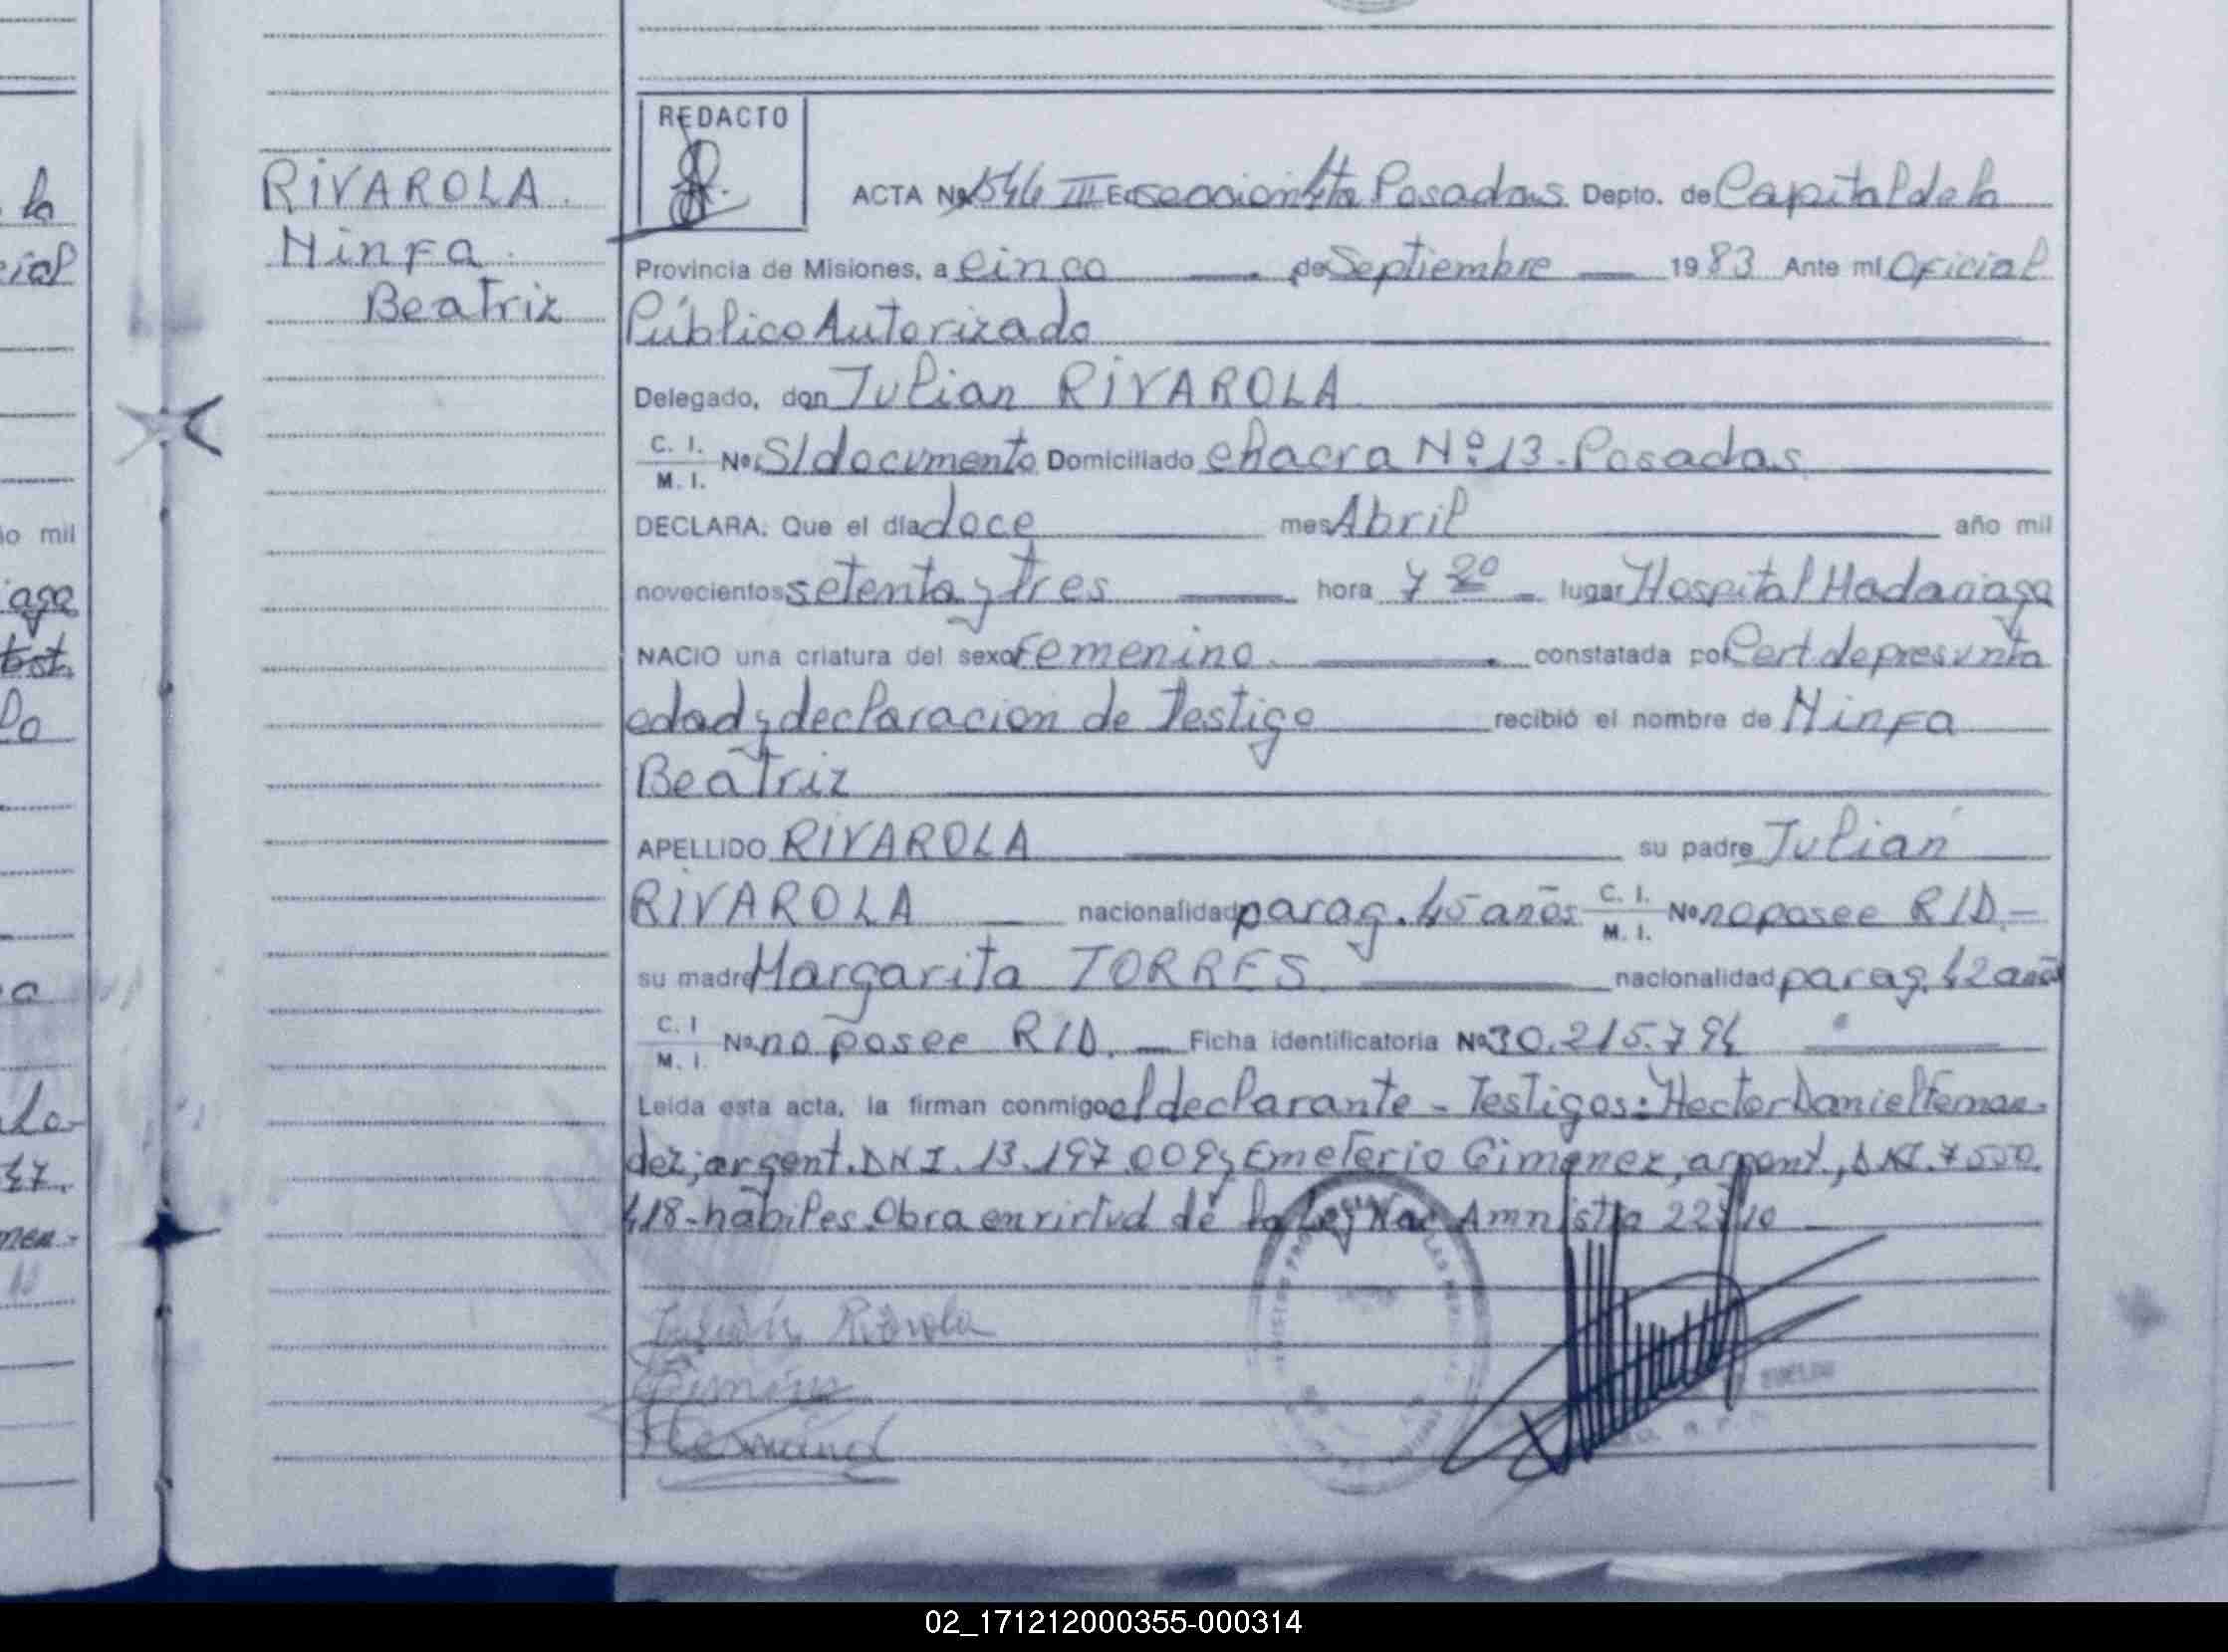 la
cial
o mil
aga
test.
Do
a
47.
RIVAROLA.
Ninfa
Beatriz
REDACTO
ACTA Nº 1546 III En seccion 4ta Posadas Depto. de Capital de la
Provincia de Misiones, a cinco de Septiembre 1983 Ante mi Oficial
Público Autorizado
Delegado, don Julian RIVAROLA
C. I. / M. I. Nº S/documento Domiciliado chacra Nº 13. Posadas
DECLARA: Que el día doce mes Abril año mil
novecientos setenta y tres hora 7 20 lugar Hospital Madariaga
NACIO una criatura del sexo Femenino. constatada por Cert. de presunta
edad y declaracion de Testigo recibió el nombre de Ninfa
Beatriz
APELLIDO RIVAROLA su padre Julián
RIVAROLA nacionalidad parag. 45 años C. I. / M. I. Nº no posee R/D.-
su madre Margarita TORRES nacionalidad parag. 42 años
C. I / M. I. Nº no posee R/D. Ficha identificatoria Nº 30.215.794
Leída esta acta, la firman conmigo el declarante - Testigos: Hector Daniel Fernan-
dez, argent. DNI. 13.197.009 y Emeterio Gimenez, argent., DNI. 7.550.
418-hábiles. Obra en virtud de la Ley Nac Amnistia
Julián Rivarola
02_171212000355-000314